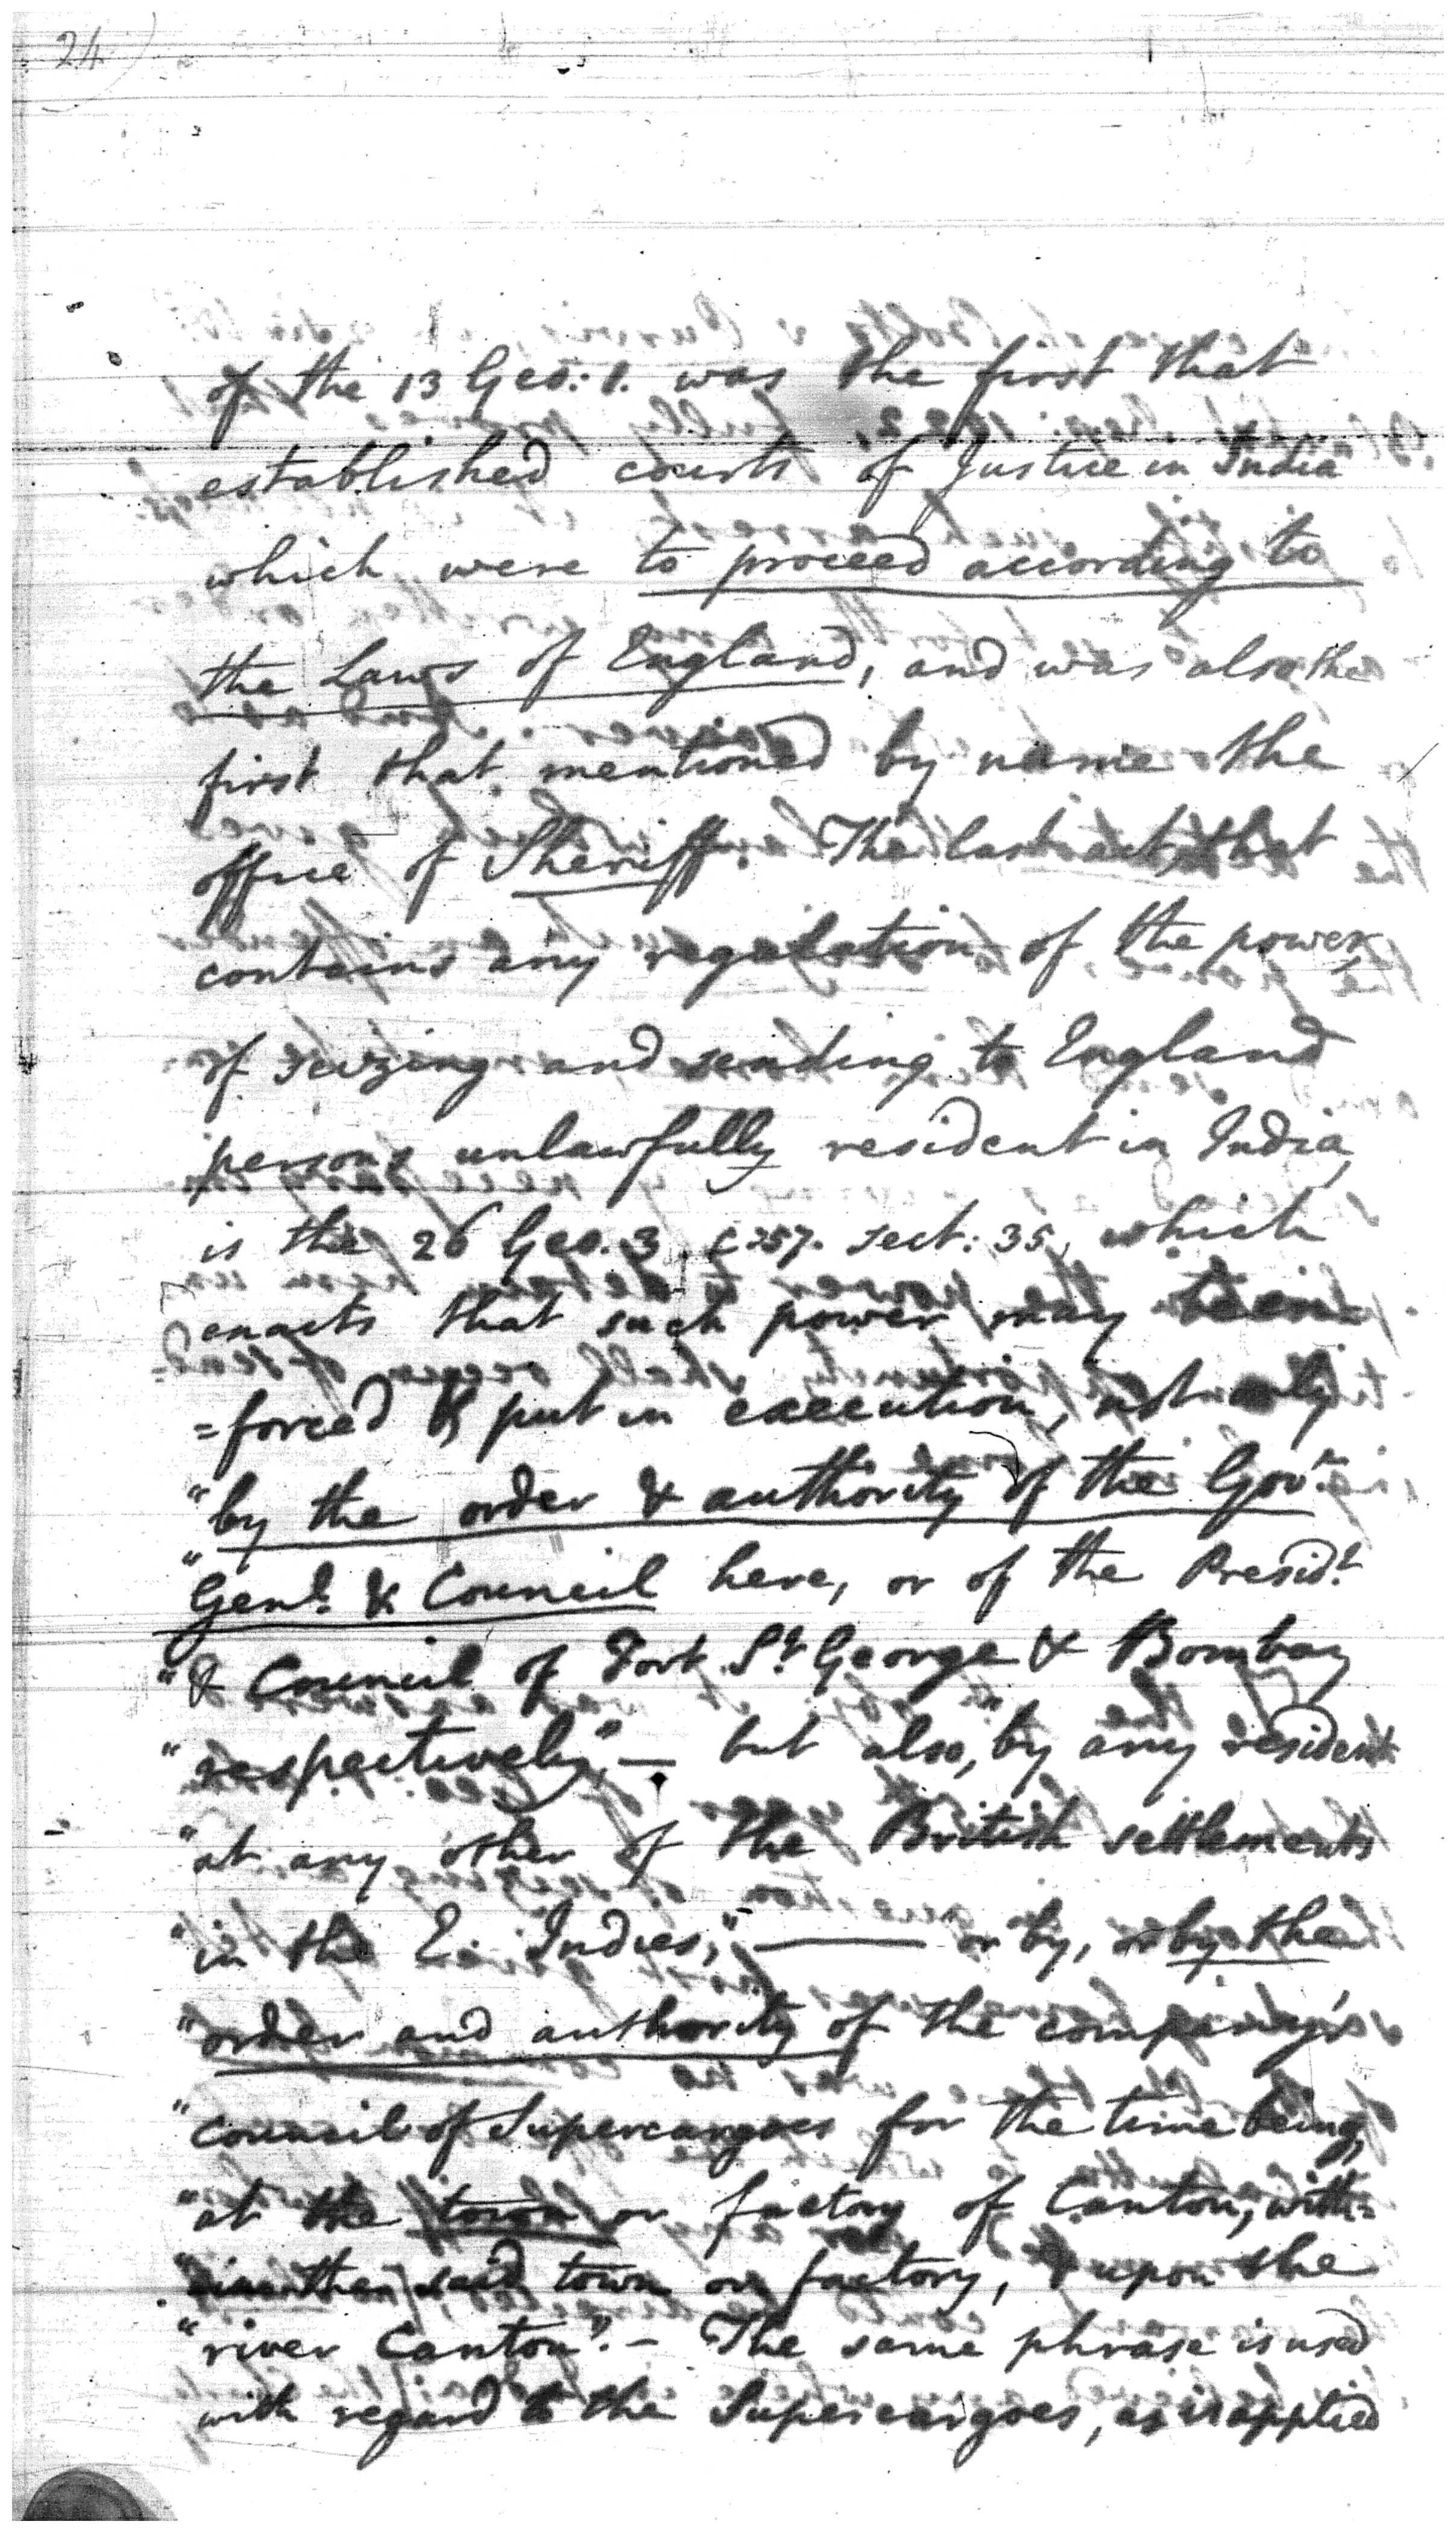 24
of the 13 Geo: 1. was the first that
established courts of Justice in India
which were to proceed according to
the Laws of England, and was also the
first that mentioned by name the
office of Sheriff. The last act that
contains any regulation of the power,
of seizing and sending to England
persons unlawfully resident in India,
is the 26 Geo. 3. c: 57. sect: 35, which
enacts that such power may be en-
=forced & put in execution, not only
"by the order & authority of the Govr.
"Genl. & Council here, or of the Presidt.
"& Council of Fort St. George & Bombay
"respectively," — but also, "by any resident
"at any other of the British settlements
"in the E. Indies," — or by, or by the
"order and authority of the company's
"council of Supercargoes for the time being,
"at the town or factory of Canton, with=
"in the said town or factory, & upon the
"river Canton". — The same phrase is used
with regard to the Supercargoes, as is applied